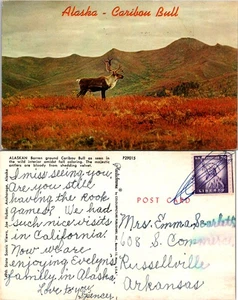 Alaska - Caribou Bull
ALASKAN Barren ground Caribou Bull as seen in
the wild interior amidst fall coloring. The majestic
antlers are bloody from shedding velvet.
P29013
I miss seeing you.
Are you still
having the Rook
games? We had
such nice visits
in California!
Now we are
enjoying Evelyn's
family in Alaska.
Love to you
POST CARD
LIBERTY
Mrs. Emma
108 S. Commerce
Russellville
Arkansas